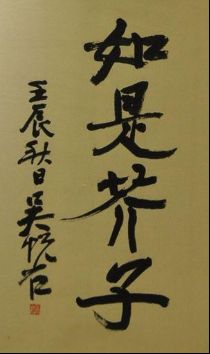 如是芥子
壬辰秋日吴悦石